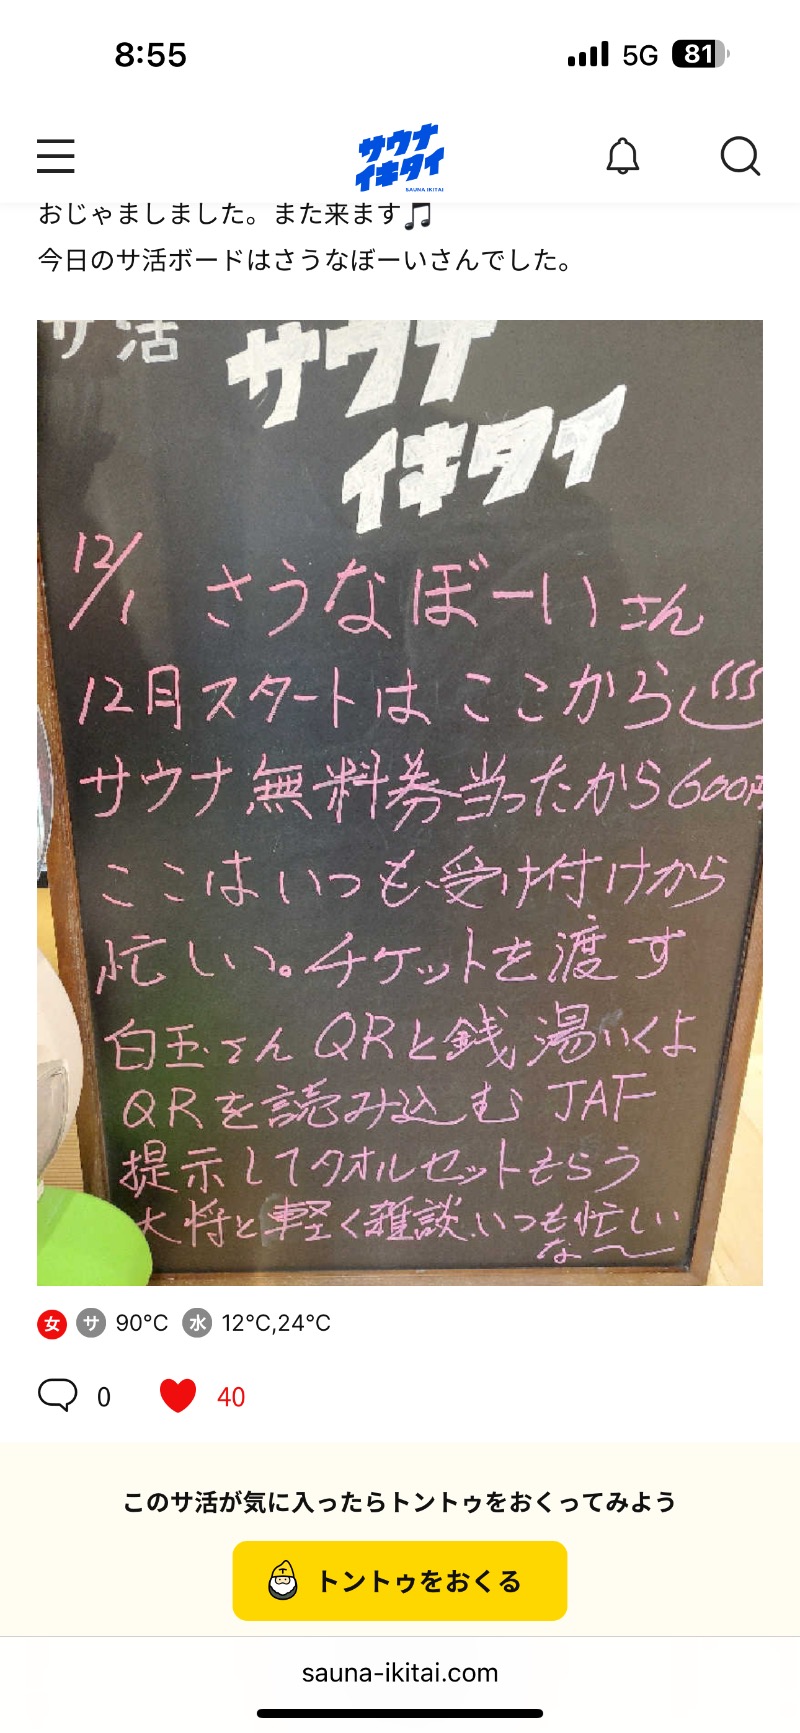 8:55
5G
81
サウナ
イキタイ
SAUNA IKITAI
おじゃましました。また来ます🎵
今日のサ活ボードはさうなぼーいさんでした。
サ活
サウナ
イキタイ
12/1 さうなぼーいさん
12月スタートはここから♨
サウナ無料券当ったから600円
ここはいつも受け付けから
忙しい。チケットを渡す
白玉さんQRと銭湯いくよ
QRを読み込む JAF
提示してタオルセットもらう
大将と軽く雑談、いつも忙しい
な〜
女 サ 90℃ 水 12℃,24℃
0 40
このサ活が気に入ったらトントゥをおくってみよう
トントゥをおくる
sauna-ikitai.com